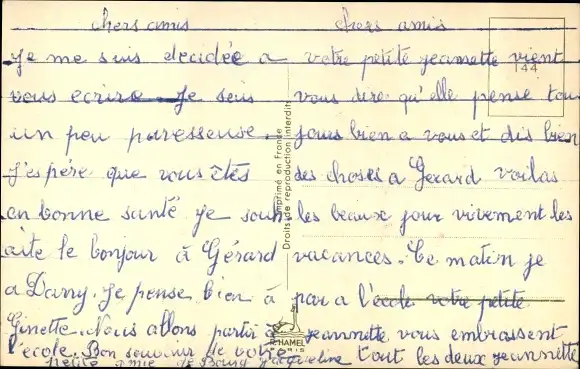 chers amis
Je me suis decidée a
vous ecrire. Je suis
un peu paresseuse.
J'espère que vous êtes
en bonne santé je souh
aite le bonjour à Gérard
a Dany. Je pense bien à
Ginette. Nous allons partir à
l'école. Bon souvenir de votre
petite amie de Bourg Jacqueline
chers amis
votre petite jeannette vient
vous dire qu'elle pense tou
jours bien a vous et dis bien
des choses a Gerard voilas
les beaux jour vivement les
vacances. Ce matin je
par a l'école votre petite
jeannette vous embrassent
tout les deux jeannette
144
Imprimé en France
Droits de reproduction interdits
R. HAMEL